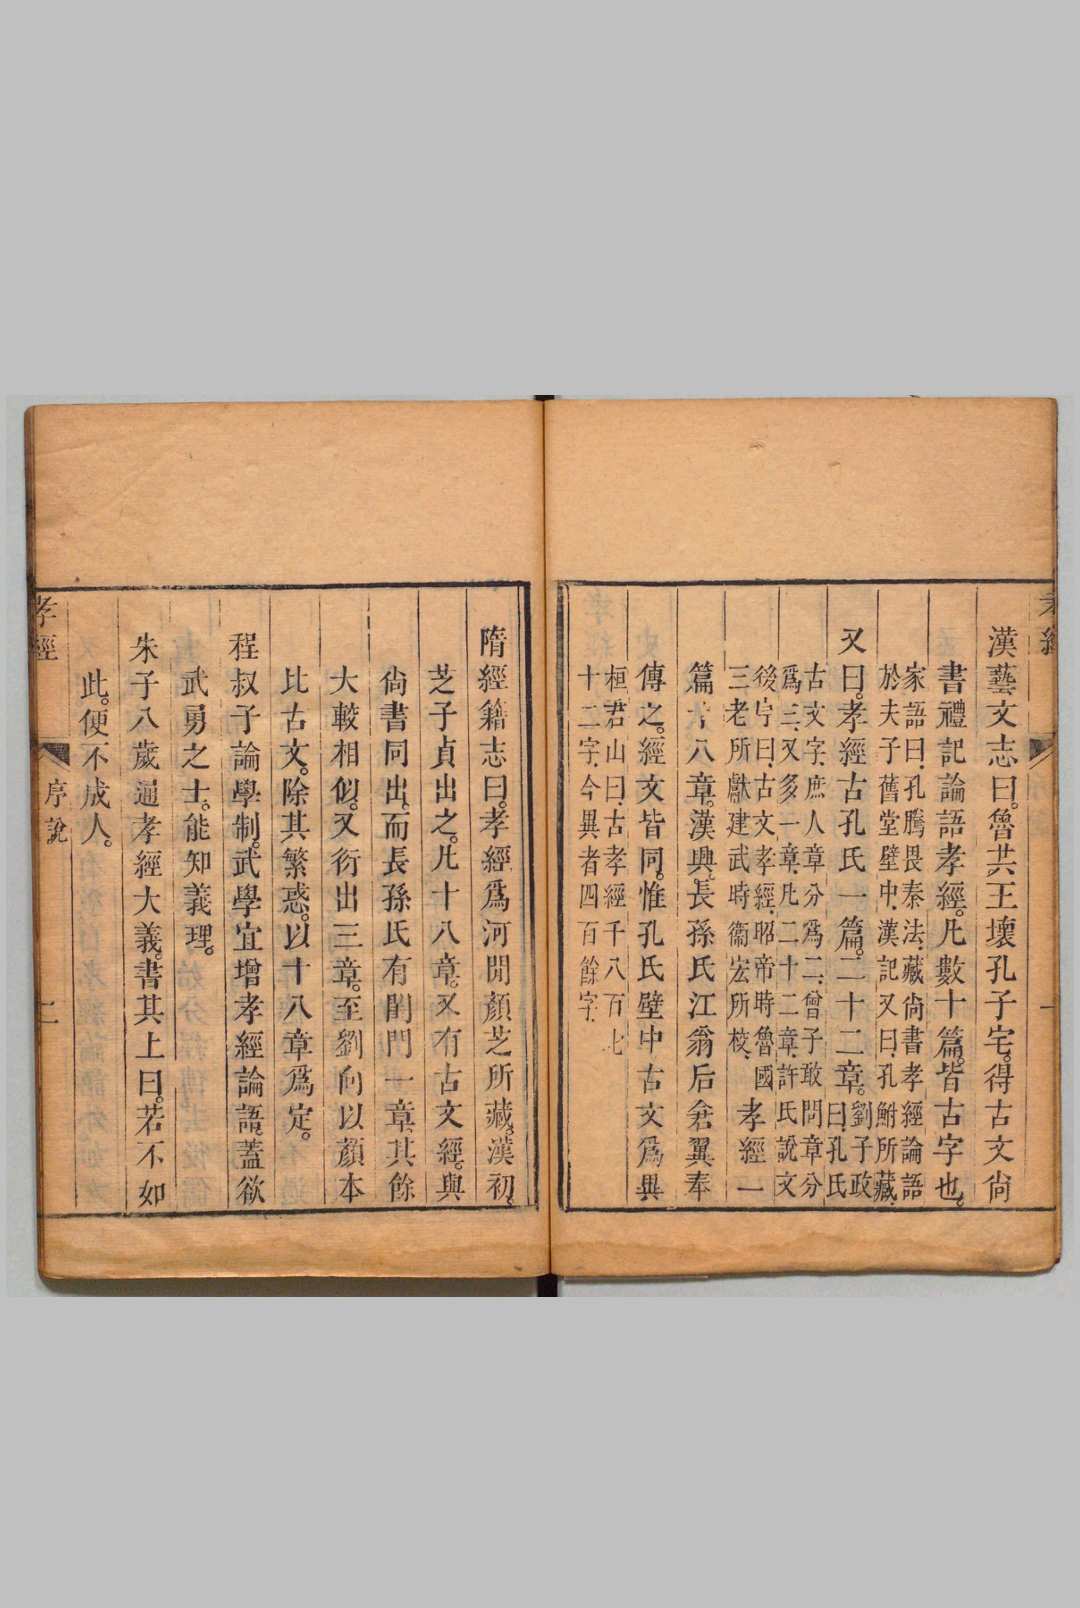 漢藝文志曰。魯共王壞孔子宅。得古文尙
書禮記論語孝經。凡數十篇。皆古字也。
家語曰、孔騰畏秦法、藏尙書孝經論語
於夫子舊堂壁中、漢記又曰、孔鮒所藏、
又曰。孝經古孔氏一篇。二十二章。劉子政
曰、孔氏
古文字、庶人章分爲二、曾子敢問章分
爲三、又多一章、凡二十二章、許氏說文
後序曰、古文孝經、昭帝時魯國
三老所獻、建武時衞宏所校、
孝經一
篇十八章。漢興。長孫氏江翁后倉翼奉
傳之。經文皆同。惟孔氏壁中古文爲異
桓君山曰、古孝經千八百七
十二字、今異者四百餘字、
隋經籍志曰。孝經爲河閒顏芝所藏。漢初。
芝子貞出之。凡十八章。又有古文經。與
尙書同出。而長孫氏有閨門一章。其餘
大較相似。又衍出三章。至劉向以顏本
比古文。除其繁惑。以十八章爲定。
程叔子論學制。武學宜增孝經論語。蓋欲
武勇之士。能知義理。
朱子八歲通孝經大義。書其上曰。若不如
此。便不成人。
孝經
序說
二